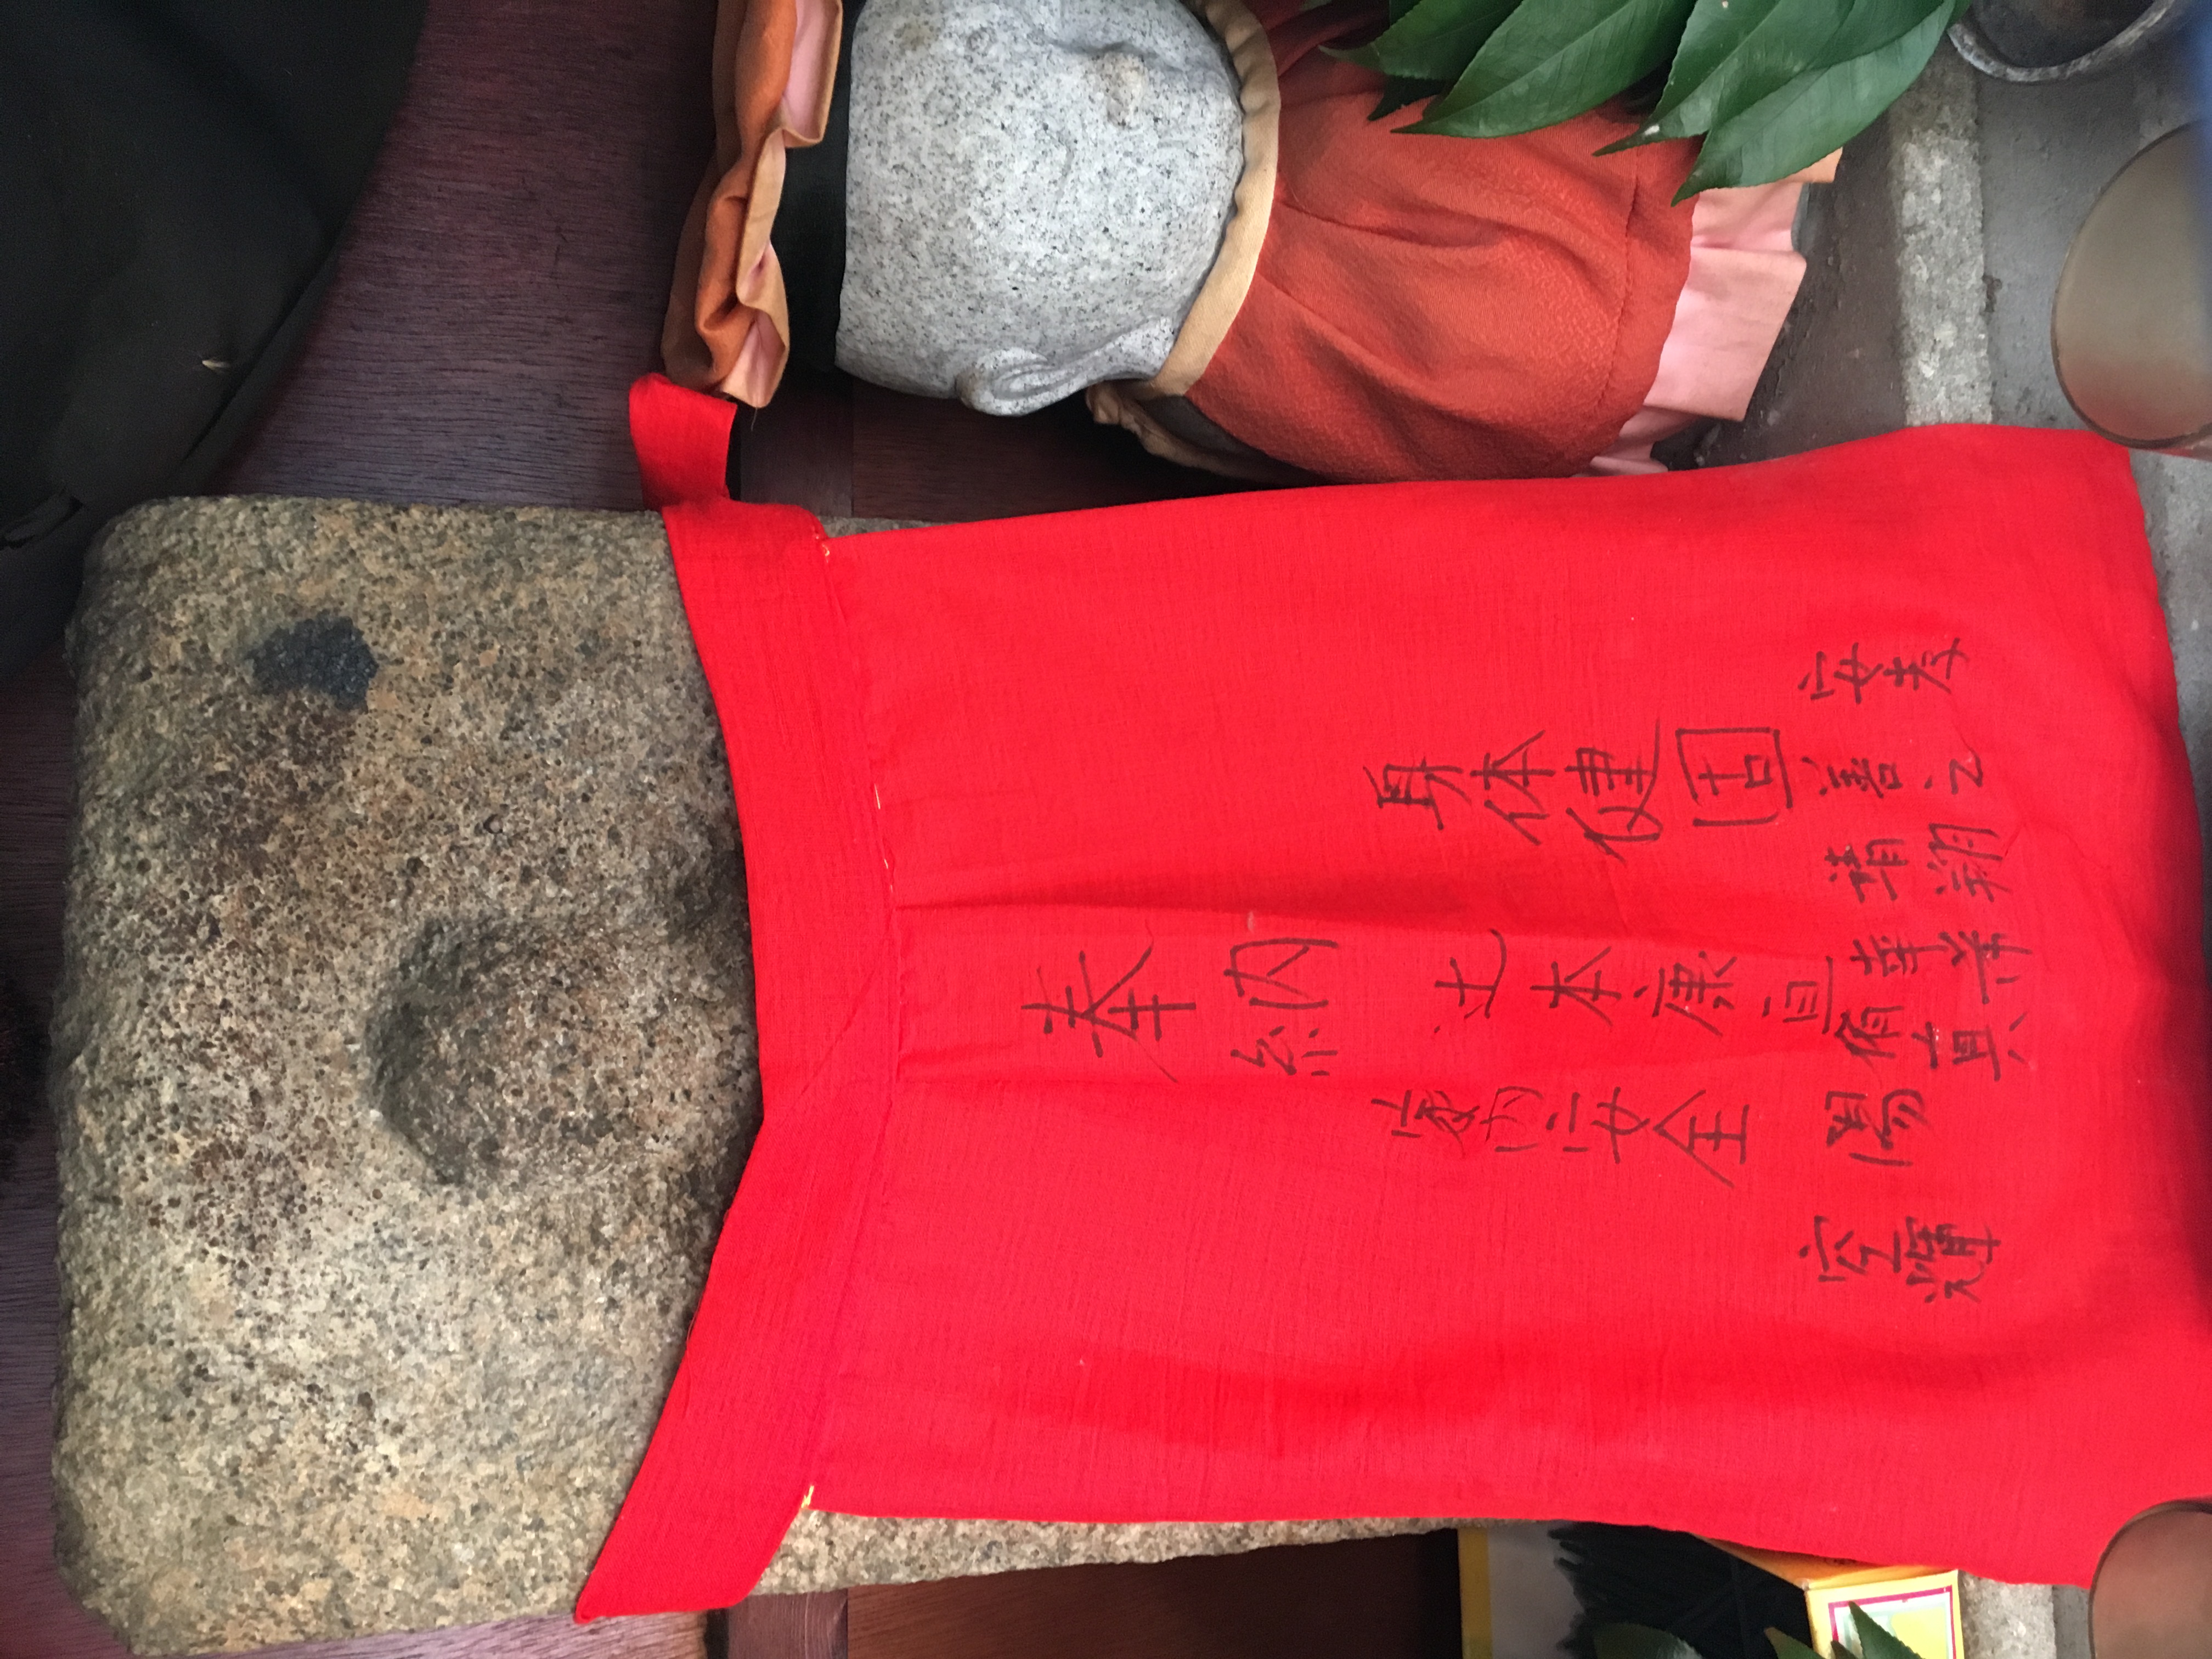 奉納
身体健固
辻本康亘
家内安全
安孝
善之
靖翔
幸希
脩真
陽
空輝